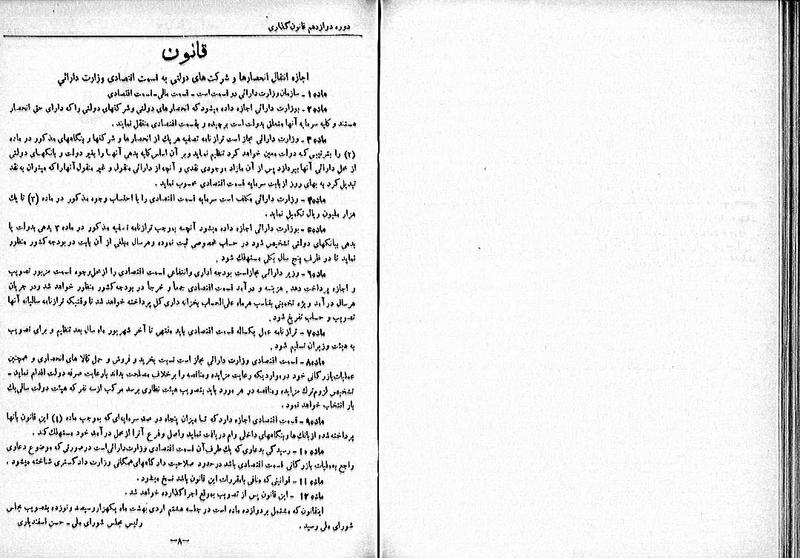 دوره دوازدهم قانون‌گذاری
قانون
اجازه انتقال انحصارها و شرکت‌های دولتی به قسمت اقتصادی وزارت دارائی
ماده ۱ - سازمان وزارت دارائی دو قسمت است - قسمت مالی - قسمت اقتصادی
ماده ۲ - بوزارت دارائی اجازه داده میشود که انحصارهای دولتی و شرکتهای دولتی را که دارای حق انحصار
هستند و کلیه سرمایه آنها متعلق بدولت است برچیده و بقسمت اقتصادی منتقل نمایند .
ماده ۳ - وزارت دارائی مجاز است ترازنامه تصفیه هر یک از انحصارها و شرکتها و بنگاههای مذکور در ماده
(۲) را بترتیبی که دولت معین خواهد کرد تنظیم نماید و بر آن اساس کلیه بدهی آنها را بغیر دولت و بانکهای دولتی
از محل دارائی آنها بپردازد پس از آن مازاد موجودی نقدی و آنچه از دارائی منقول و غیر منقول آنها را که میتوان به نقد
تبدیل کرد به بهای روز از بابت سرمایه قسمت اقتصادی محسوب نماید .
ماده ۴ - وزارت دارائی مکلف است سرمایه قسمت اقتصادی را با احتساب وجوه مذکور در ماده (۳) تا یک
هزار ملیون ریال تکمیل نماید .
ماده ۵ - بوزارت دارائی اجازه داده میشود آنچه بموجب ترازنامه تصفیه مذکور در ماده ۳ بدهی بدولت یا
بدهی ببانکهای دولتی تشخیص شود در حساب مخصوصی ثبت نموده و هر سال مبلغی از آن بابت در بودجه کشور منظور
نماید تا در ظرف پنج سال بکلی مستهلک شود .
ماده ۶ - وزیر دارائی مجاز است بودجه اداری و انتفاعی قسمت اقتصادی را از محل وجوه قسمت مزبور تصویب
و اجازه پرداخت دهد . هزینه و درآمد قسمت اقتصادی جمعاً و خرجاً در بودجه کشور منظور خواهد شد و در جریان
هر سال درآمد ویژه تخمینی بتناسب هر ماه علی‌الحساب بخزانه داری کل پرداخته خواهد شد تا وقتیکه ترازنامه سالیانه آنها
تصویب و حساب تفریغ شود .
ماده ۷ - ترازنامه عمل یکساله قسمت اقتصادی باید منتهی تا آخر شهریور ماه سال بعد تنظیم و برای تصویب
به هیئت وزیران تسلیم شود .
ماده ۸ - قسمت اقتصادی وزارت دارائی مجاز است نسبت بخرید و فروش و حمل کالاهای انحصاری و همچنین
عملیات بازرگانی خود در مواردیکه رعایت مزایده و مناقصه را بر خلاف مصلحت بداند با رعایت صرفه دولت اقدام نماید -
تشخیص لزوم ترک مزایده و مناقصه در هر مورد باید بتصویب هیئت نظاری برسد مرکب از سه نفر که هیئت دولت سالی یک
بار انتخاب خواهد نمود .
ماده ۹ - قسمت اقتصادی اجازه دارد که تا میزان پنجاه در صد سرمایه‌ای که بموجب ماده (۱) این قانون بآنها
پرداخته شده از بانک‌ها و بنگاههای داخلی وام دریافت نماید و اصل و فرع آنرا از محل درآمد خود مستهلک کند .
ماده ۱۰ - رسیدگی بدعاوی که یک طرف آن قسمت اقتصادی وزارت دارائی است در صورتی که موضوع دعاوی
راجع بعملیات بازرگانی قسمت اقتصادی باشد در حدود صلاحیت دادگاههای همگانی وزارت دادگستری شناخته میشود .
ماده ۱۱ - قوانینی که منافی با مقررات این قانون باشد نسخ میشود .
ماده ۱۲ - این قانون پس از تصویب بموقع اجرا گذارده خواهد شد .
اینقانون که مشتمل بر دوازده ماده است در جلسه هشتم اردی بهشت ماه یکهزار و سیصد و نوزده بتصویب مجلس
شورای ملی رسید .
رئیس مجلس شورای ملی - حسن اسفندیاری
-۸-